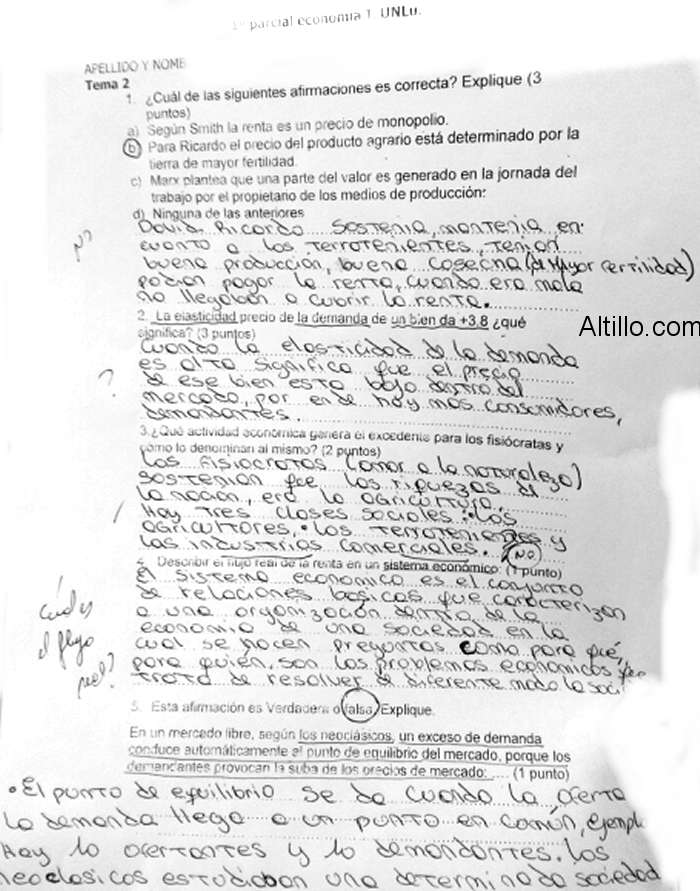 1º parcial economía 1. UNLu.
APELLIDO Y NOMB
Tema 2
1. ¿Cuál de las siguientes afirmaciones es correcta? Explique (3
puntos)
a) Según Smith la renta es un precio de monopolio.
b) Para Ricardo el precio del producto agrario está determinado por la
tierra de mayor fertilidad.
c) Marx plantea que una parte del valor es generado en la jornada del
trabajo por el propietario de los medios de producción:
d) Ninguna de las anteriores
David Ricardo sostenia, mantenia en
cuanto a los terratenientes, tenian
buena producción, buena cosecha (a mayor fertilidad)
podian pagar la renta, cuando era mala
no llegaban a cubrir la renta.
2. La elasticidad precio de la demanda de un bien da +3,8 ¿qué
significa? (3 puntos)
Altillo.com
Cuando la elasticidad de la demanda
es alta significa que el precio
?
de ese bien esta bajo dentro del
mercado, por ende hay mas consumidores,
demandantes.
3.¿Qué actividad económica genera el excedente para los fisiócratas y
cómo lo denominan al mismo? (2 puntos)
Los fisiocratas (amor a la naturaleza)
sostenian que las riquezas de
la nacion, era la agricultura.
Hay tres clases sociales: los
agricultores, los terratenientes y
las industrias comerciales. No
4. Describir el flujo real de la renta en un sistema económico: (1 punto)
El sistema economico es el conjunto
de relaciones basicas que caracterizan
Cuál es
a una organización dentro de la
el flujo
economia de una sociedad en la
real?
cual se hacen preguntas como para que,
para quien, son los problemas economicos que
trata de resolver de diferente modo la soci
5. Esta afirmación es Verdadera o falsa. Explique.
En un mercado libre, según los neoclásicos, un exceso de demanda
conduce automáticamente al punto de equilibrio del mercado, porque los
demandantes provocan la suba de los precios de mercado: .... (1 punto)
• El punto de equilibrio se da cuando la oferta
la demanda llega a un punto en común, ejemplo
Hay 10 ofertantes y 10 demandantes. Los
neoclasicos estudiaban una determinada sociedad